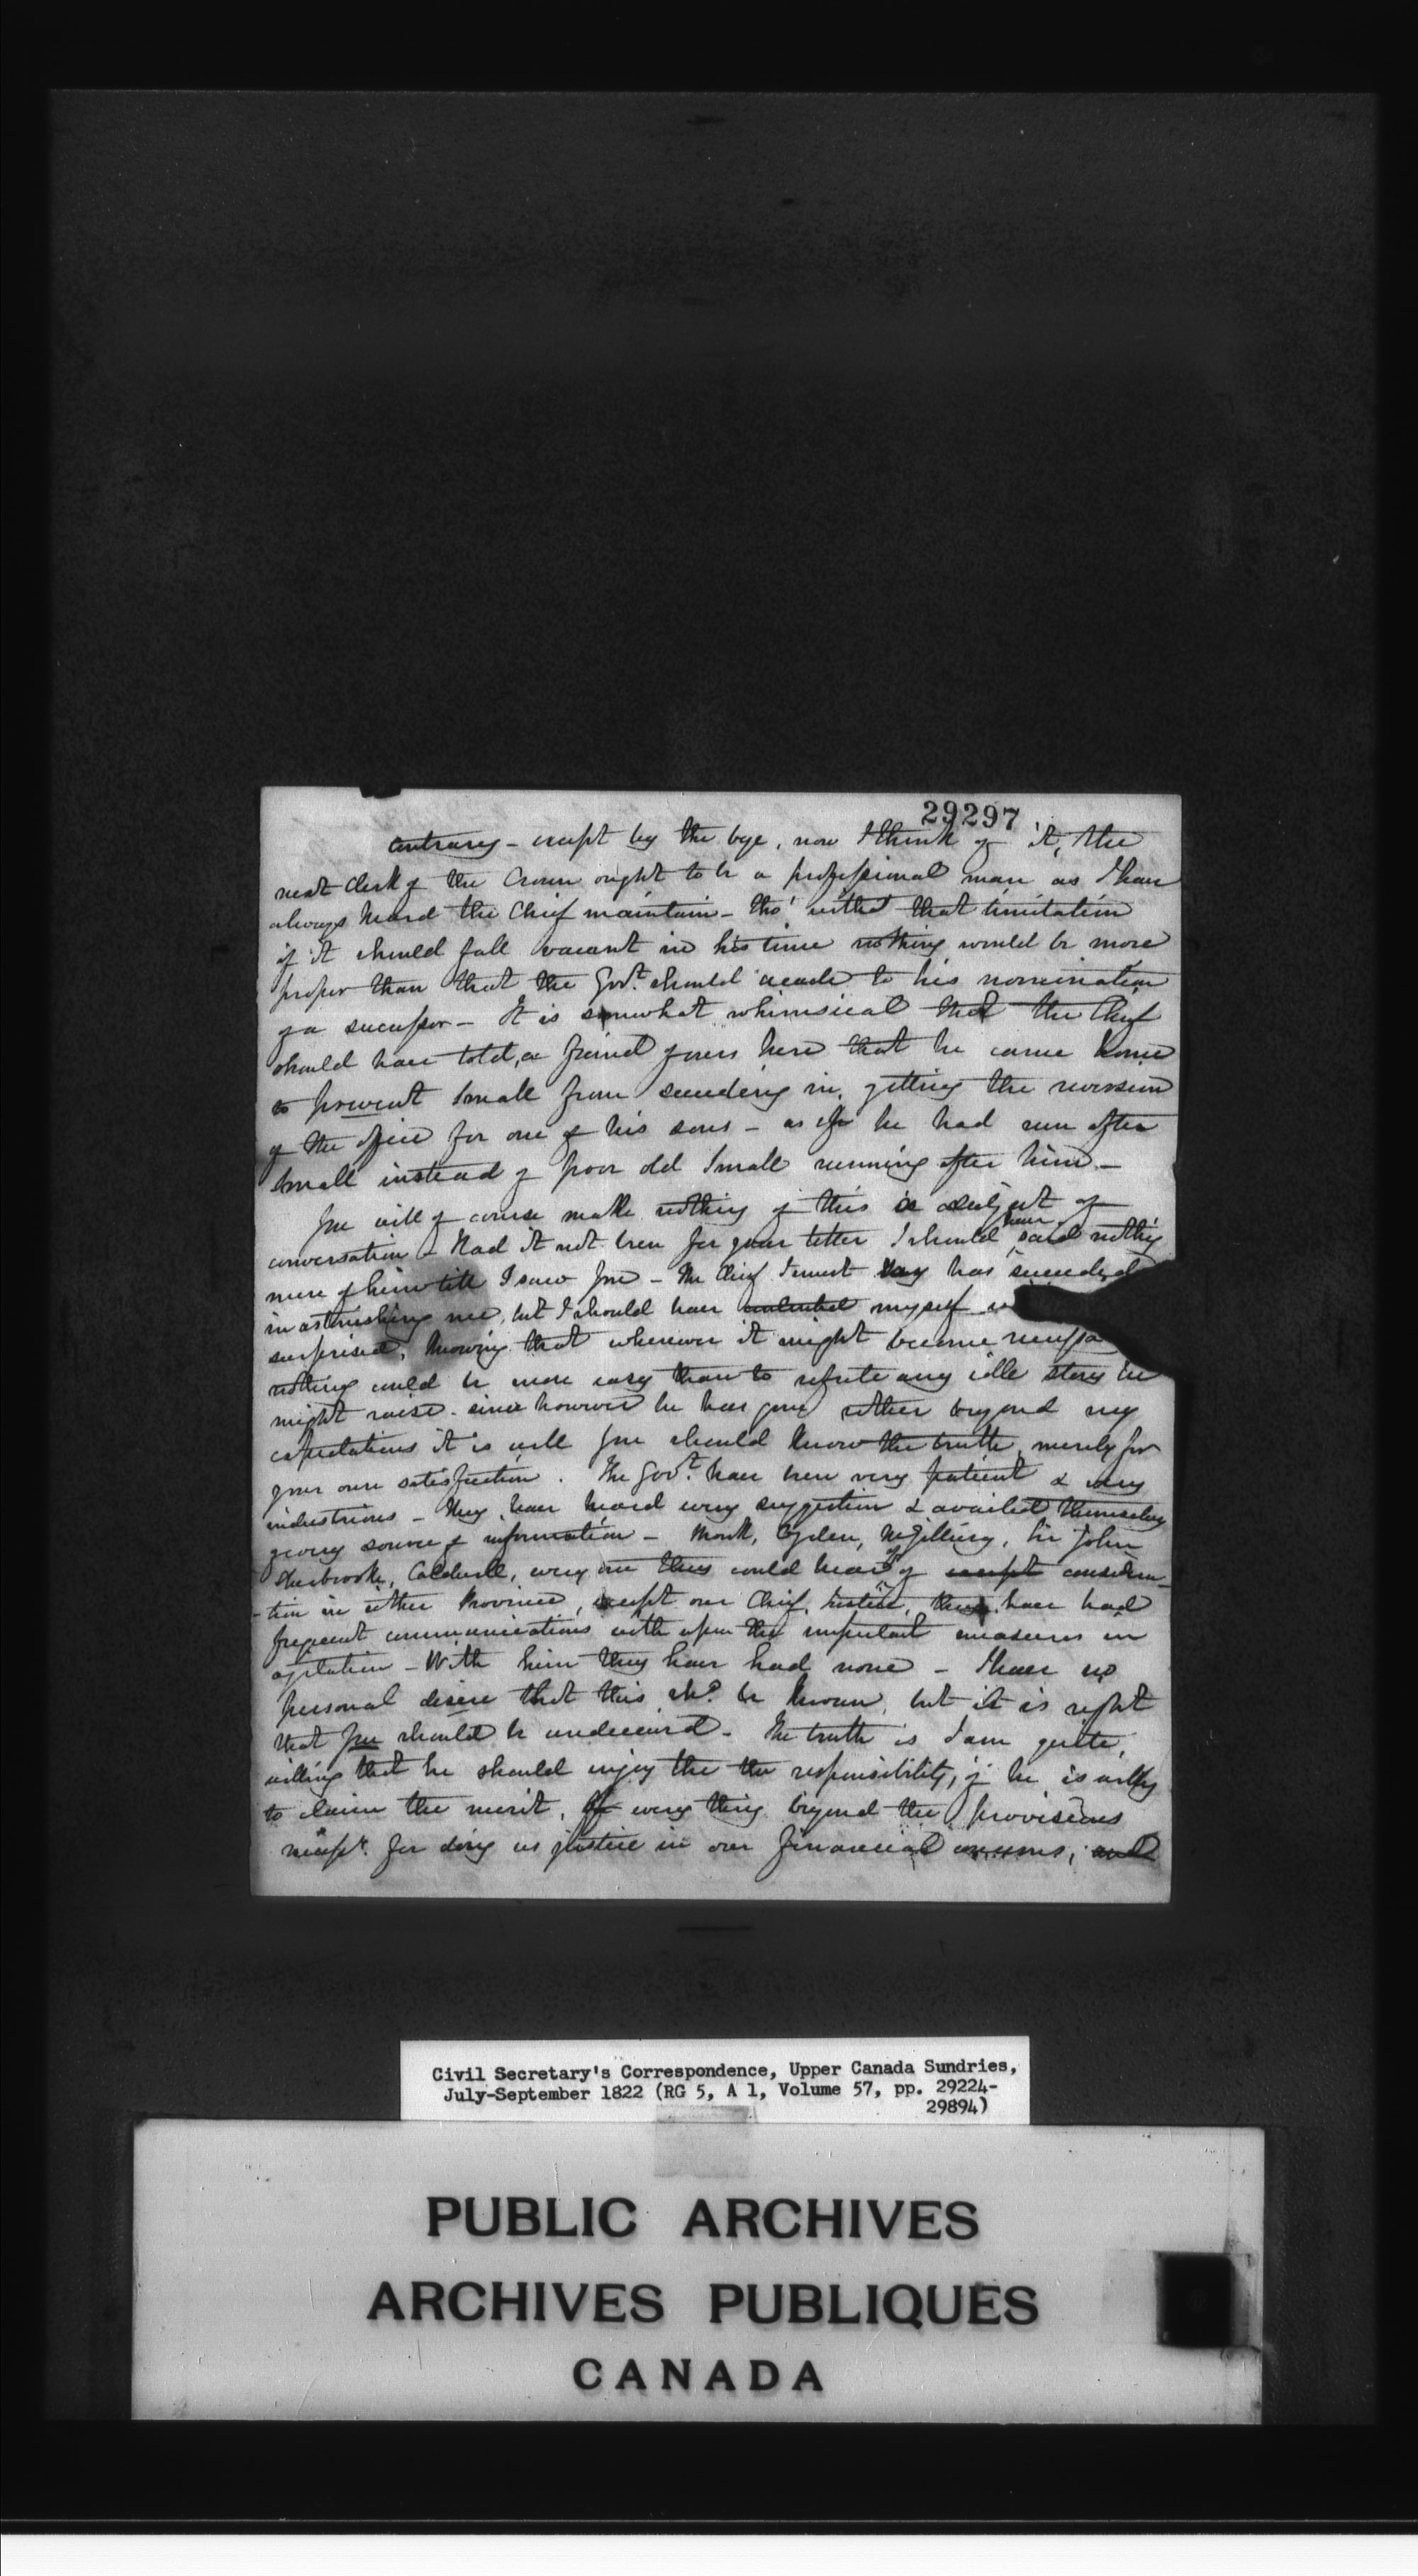 29297
contrary - except by the bye, now I think of it, the
next Clerk of the Crown ought to be a professional man as I have
always heard the Chief maintain - tho' with that limitation
if it should fall vacant in his time nothing would be more
proper than that the Govt. should accede to his nomination
of a successor - It is somewhat whimsical that the Chief
should have told, a friend of yours here that he came home
to prevent Small from succeeding in getting the reversion
of the office for one of his sons - as if he had run after
Small instead of poor old Small running after him -
You will of course make nothing of this a subject of
conversation - Had it not been for your letter I should have said nothing
more of him till I saw you - The Chief I must say has succeeded
in astonishing me, but I should have myself
surprised, knowing that whenever it might become
nothing could be more easy than to refute any idle story he
might raise - since however he has gone rather beyond my
expectations it is well you should know the truth, merely for
your own satisfaction. The Govt. have been very patient & very
industrious - they have heard every suggestion & availed themselves
of every source of information - Monk, Ogden, McGillivray, Sir John
Sherbrooke, Caldwell, every one they could hear of of consideration
-tion in either Province, except our Chief Justice, they have had
frequent communications with upon the important measures in
agitation - With him they have had none - I have no
personal desire that this shd. be known, but it is right
that you should be undeceived - The truth is I am quite,
willing that he should enjoy the the responsibility, if he is willing
to claim the merit, of every thing beyond the provisions
necessy. for doing us justice in our financial concerns, and
Civil Secretary's Correspondence, Upper Canada Sundries,
July-September 1822 (RG 5, A 1, Volume 57, pp. 29224-
29894)
PUBLIC ARCHIVES
ARCHIVES PUBLIQUES
CANADA